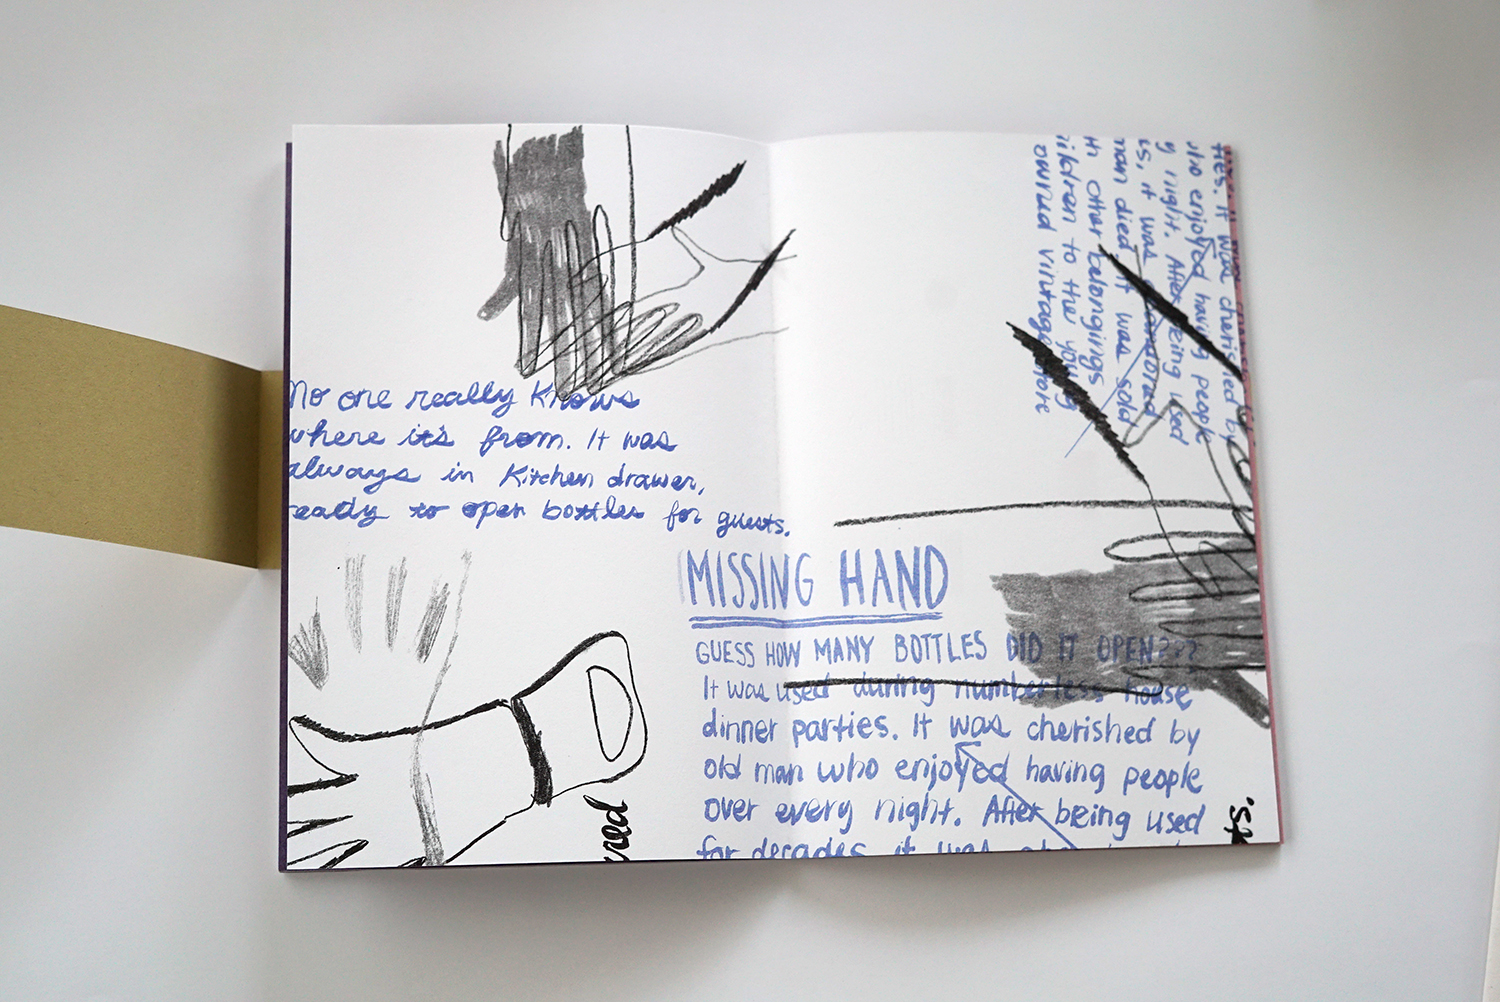 No one really knows
where it's from. It was
always in Kitchen drawer,
ready to open bottles for guests.
MISSING HAND
GUESS HOW MANY BOTTLES DID IT OPEN???
It was used during numberless house
dinner parties. It was cherished by
old man who enjoyed having people
over every night. After being used
for decades, it was
ties. It was cherished by
who enjoyed having people
y night. After being used
es, it was
man died it was sold
th other belongings
ildren to the young
owned vintage store
red